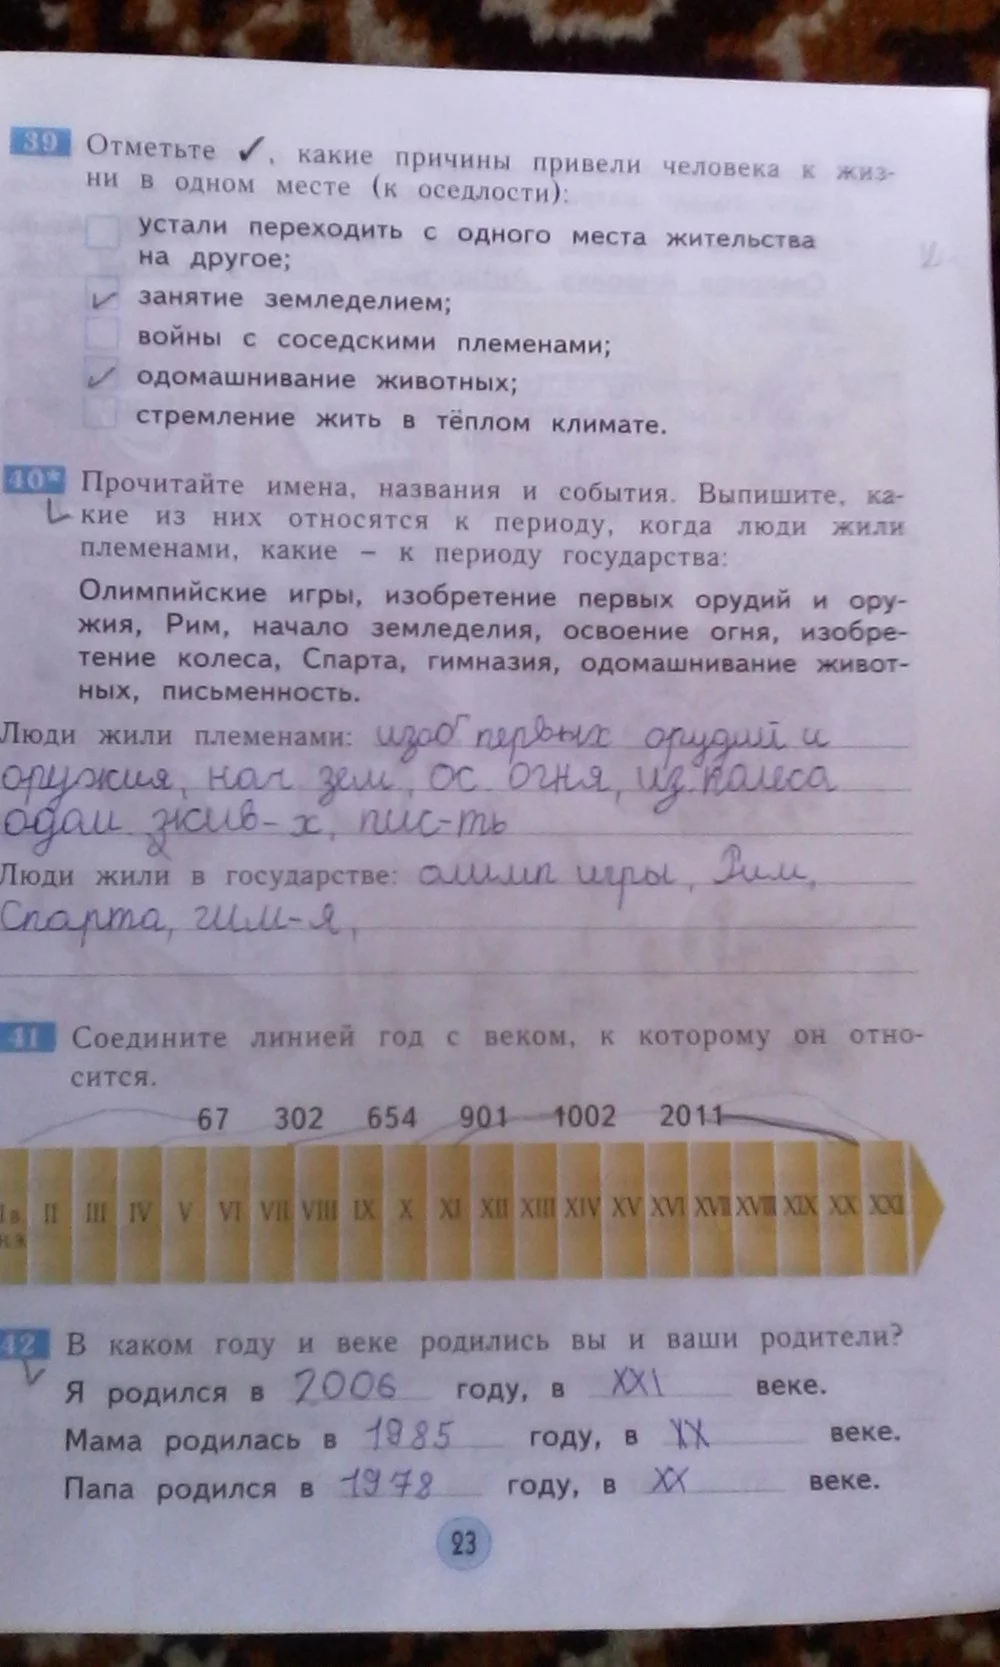 39 Отметьте ✓, какие причины привели человека к жиз-
ни в одном месте (к оседлости):
устали переходить с одного места жительства
на другое;
✓ занятие земледелием;
войны с соседскими племенами;
✓ одомашнивание животных;
стремление жить в тёплом климате.
40* Прочитайте имена, названия и события. Выпишите, ка-
кие из них относятся к периоду, когда люди жили
племенами, какие – к периоду государства:
Олимпийские игры, изобретение первых орудий и ору-
жия, Рим, начало земледелия, освоение огня, изобре-
тение колеса, Спарта, гимназия, одомашнивание живот-
ных, письменность.
Люди жили племенами: изоб первых орудий и
оружия, нач зем, ос огня, из.колеса
одом жив-х, пис-ть
Люди жили в государстве: олимп игры, Рим,
Спарта, гим-я,
41 Соедините линией год с веком, к которому он отно-
сится.
67 302 654 901 1002 2011
I в. II III IV V VI VII VIII IX X XI XII XIII XIV XV XVI XVII XVIII XIX XX XXI
н.э.
42 В каком году и веке родились вы и ваши родители?
Я родился в 2006 году, в XXI веке.
Мама родилась в 1985 году, в XX веке.
Папа родился в 1978 году, в XX веке.
23